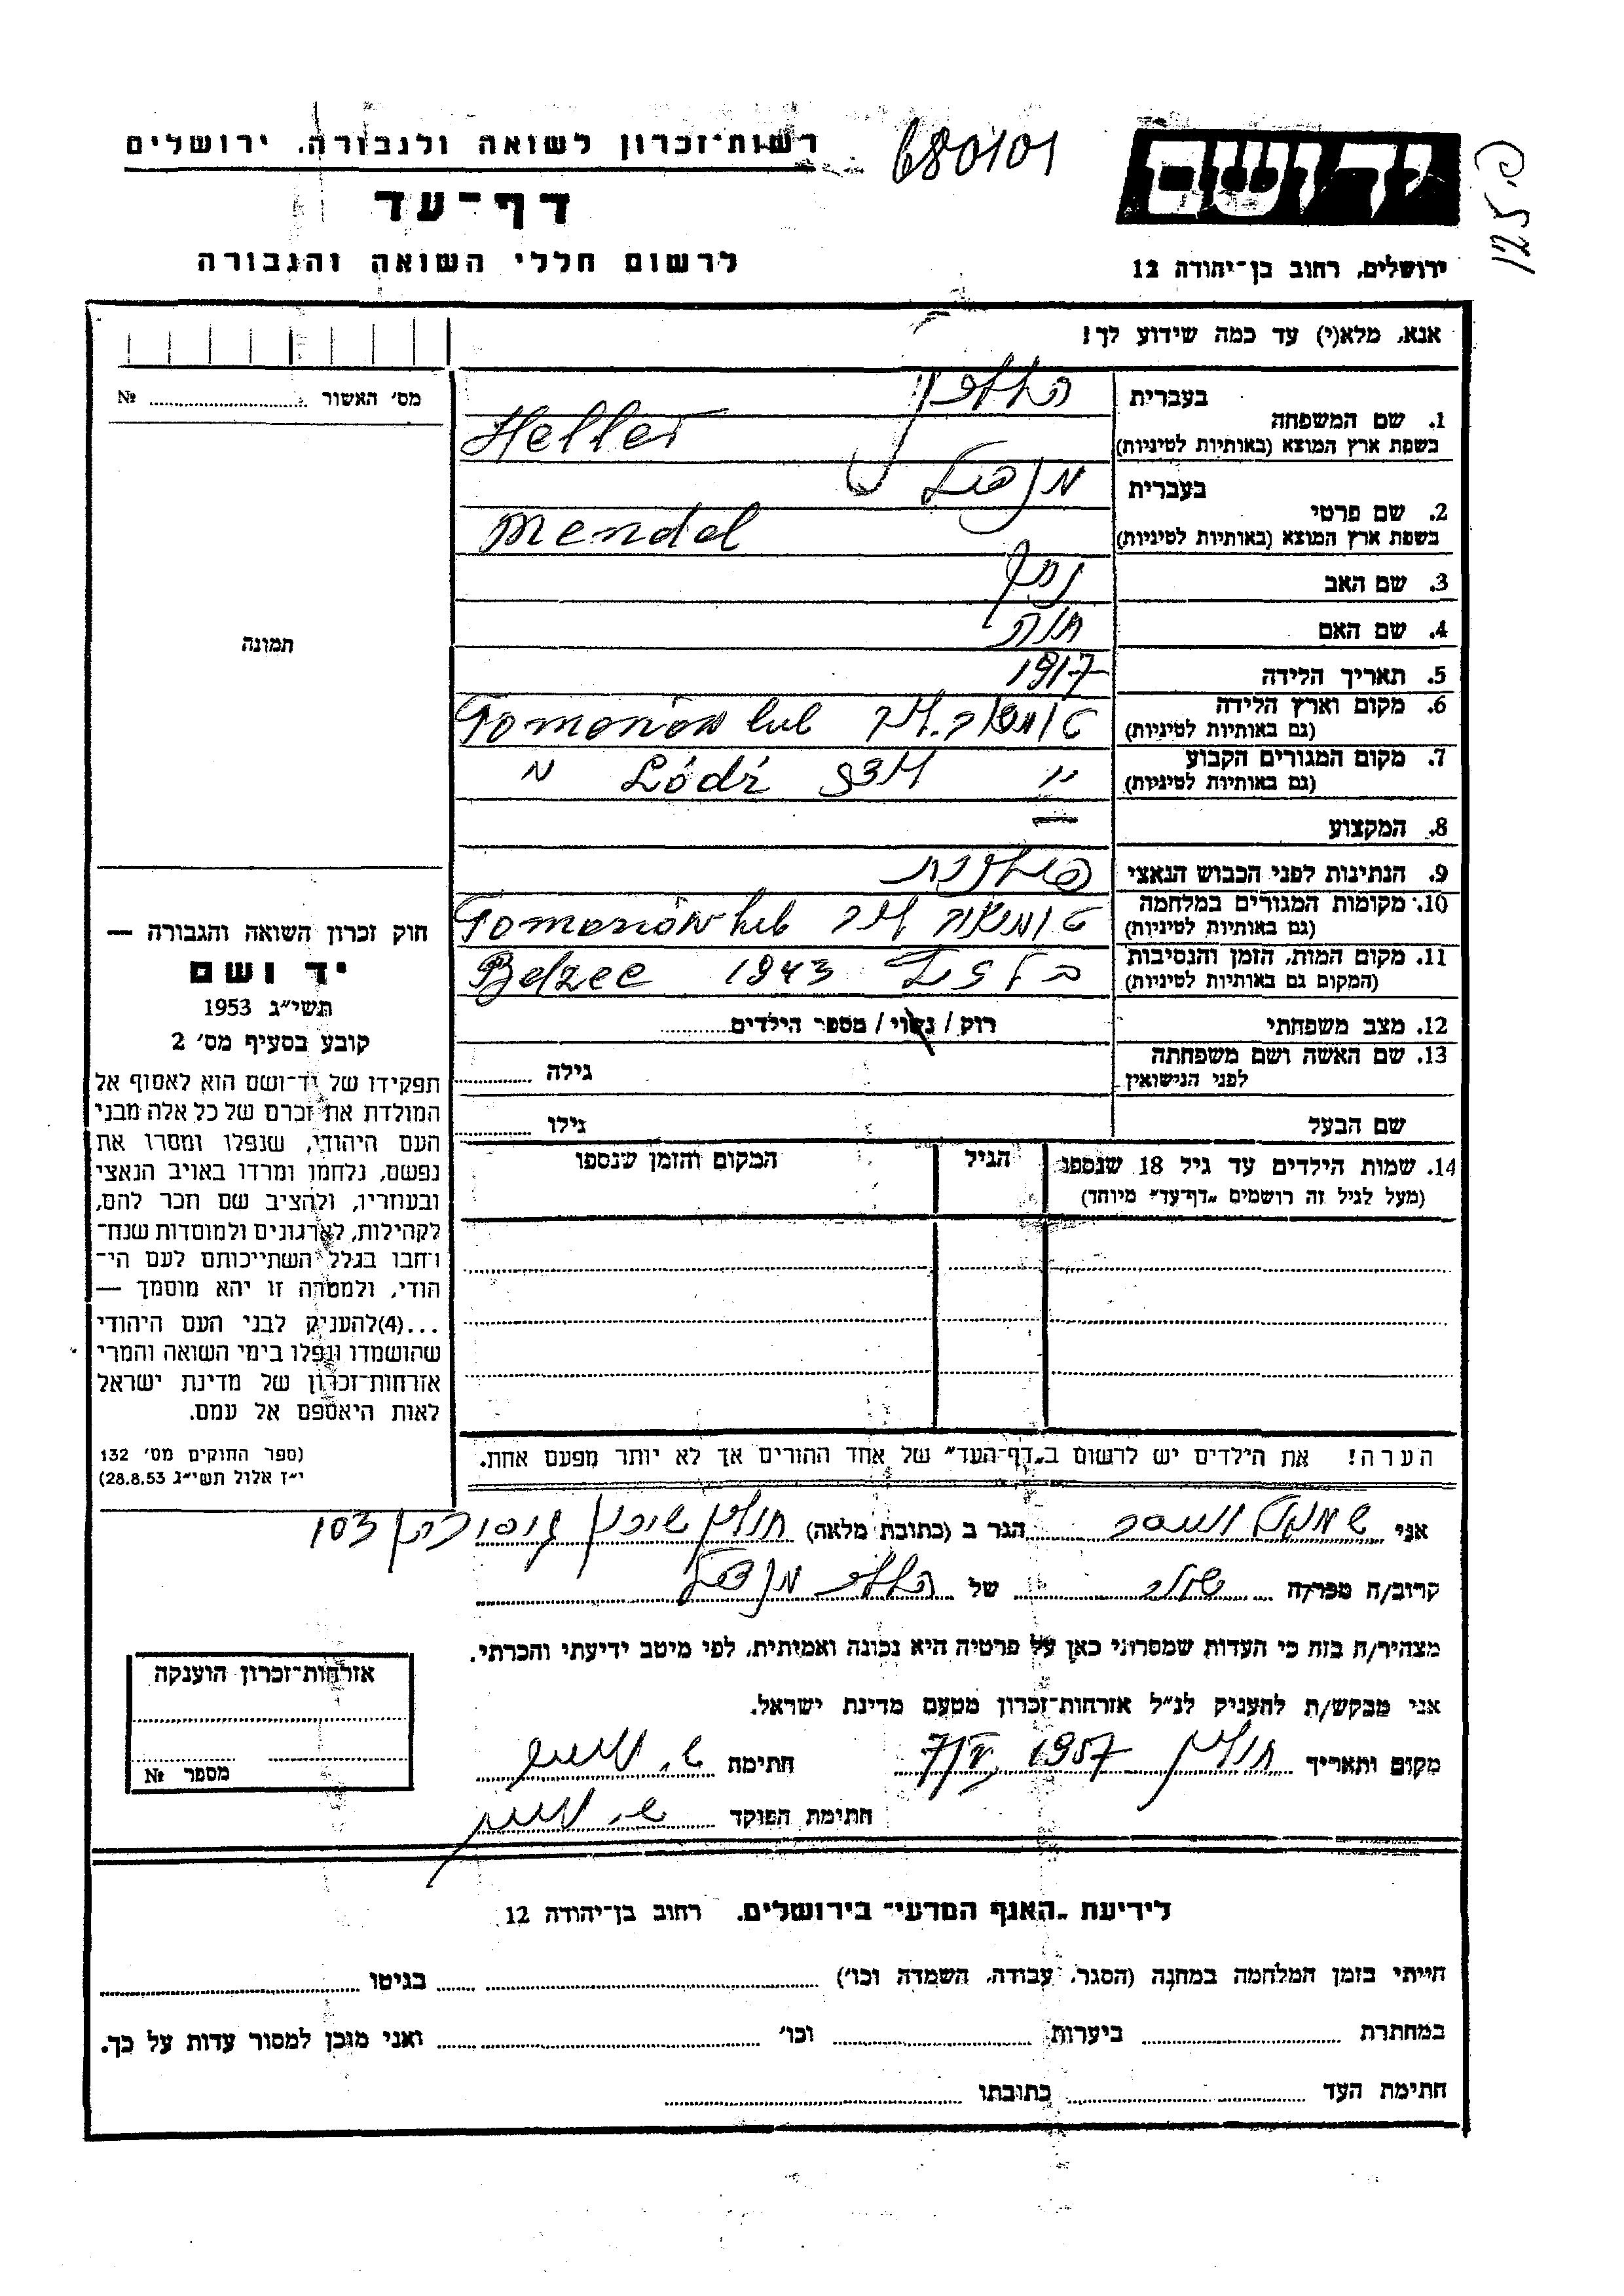 רשות־זכרון לשואה ולגבורה, ירושלים
680101
יד ושם
125.פ
דף־עד
לרשום חללי השואה והגבורה
ירושלים, רחוב בן־יהודה 12
אנא, מלא(י) עד כמה שידוע לך!
מס׳ האשור ............ №
תמונה
1. שם המשפחה
בעברית הלר
בשפת ארץ המוצא (באותיות לטיניות) Heller
2. שם פרטי
בעברית מנדל
בשפת ארץ המוצא (באותיות לטיניות) Mendel
3. שם האב
4. שם האם חוה
5. תאריך הלידה 1917
6. מקום וארץ הלידה
(גם באותיות לטיניות) Tomanów lub
7. מקום המגורים הקבוע
(גם באותיות לטיניות) " לודז Łódź "
8. המקצוע —
9. הנתינות לפני הכבוש הנאצי פולנית
10. מקומות המגורים במלחמה
(גם באותיות לטיניות) Tomanów lub
11. מקום המות, הזמן והנסיבות
(המקום גם באותיות לטיניות) 1943 Belzec
12. מצב משפחתי רוק / נשוי / מספר הילדים
13. שם האשה ושם משפחתה
לפני הנישואין גילה
שם הבעל גילו
14. שמות הילדים עד גיל 18 שנספו הגיל המקום והזמן שנספו
(מעל לגיל זה רושמים „דף־עד" מיוחד)
הערה! את הילדים יש לרשום ב„דף־העד" של אחד ההורים אך לא יותר מפעם אחת.
חוק זכרון השואה והגבורה —
יד ושם
תשי״ג 1953
קובע בסעיף מס׳ 2
תפקידו של יד־ושם הוא לאסוף אל
המולדת את זכרם של כל אלה מבני
העם היהודי, שנפלו ומסרו את
נפשם, נלחמו ומרדו באויב הנאצי
ובעוזריו, ולהציב שם וזכר להם,
לקהילות, לארגונים ולמוסדות שנח־
רבו בגלל השתייכותם לעם הי־
הודי, ולמטרה זו יהא מוסמך —
...(4)להעניק לבני העם היהודי
שהושמדו ונפלו בימי השואה והמרי
אזרחות־זכרון של מדינת ישראל
לאות היאספם אל עמם.
(ספר החוקים מס׳ 132
י״ז אלול תשי״ג 28.8.53)
אני שמואל הגר ב (כתובת מלאה) חולון שיכון 103
קרוב/ה מכר/ה של הלר מנדל
מצהיר/ה בזה כי העדות שמסרתי כאן על פרטיה היא נכונה ואמיתית, לפי מיטב ידיעתי והכרתי.
אני מבקש/ת להעניק לנ״ל אזרחות־זכרון מטעם מדינת ישראל.
מקום ותאריך חולון 1957 חתימה
חתימת הפוקד
אזרחות־זכרון הוענקה
מספר №
לידיעת „האגף המדעי" בירושלים. רחוב בן־יהודה 12
הייתי בזמן המלחמה במחנה (הסגר, עבודה, השמדה וכו׳) בגיטו
במחתרת ביערות וכו׳ ואני מוכן למסור עדות על כך.
חתימת העד כתובתו